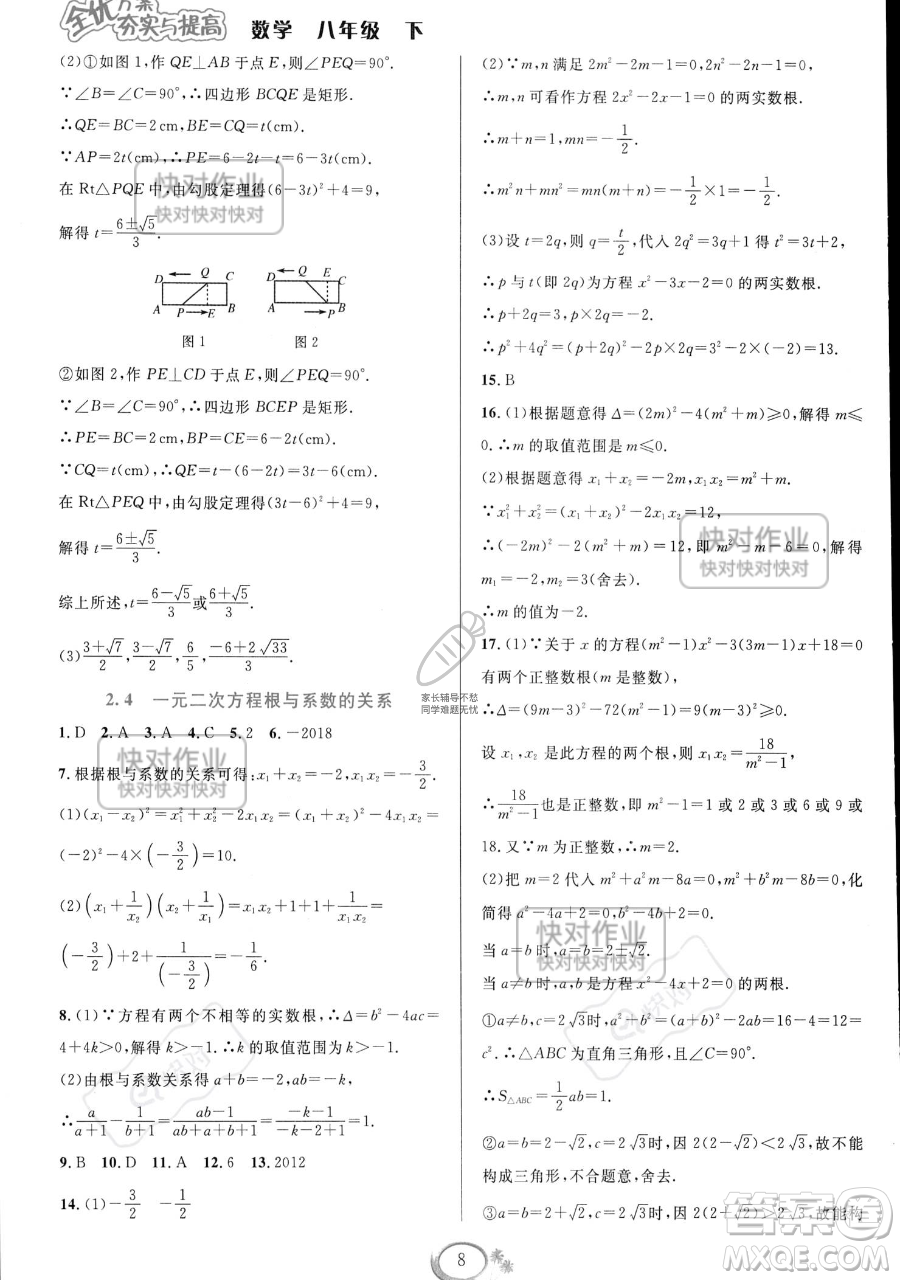 全优方案夯实与提高 数学 八年级 下
(2)①如图 1,作 QE⊥AB 于点 E,则∠PEQ=90°.
∵∠B=∠C=90°,∴四边形 BCQE 是矩形.
∴QE=BC=2 cm,BE=CQ=t(cm).
∵AP=2t(cm),∴PE=6-2t-t=6-3t(cm).
在 Rt△PQE 中,由勾股定理得(6-3t)²+4=9,
解得 t=(6±√5)/3.
D Q C A P E B
D Q E C A P B
图 1 图 2
②如图 2,作 PE⊥CD 于点 E,则∠PEQ=90°.
∵∠B=∠C=90°,∴四边形 BCEP 是矩形.
∴PE=BC=2 cm,BP=CE=6-2t(cm).
∵CQ=t(cm),∴QE=t-(6-2t)=3t-6(cm).
在 Rt△PEQ 中,由勾股定理得(3t-6)²+4=9,
解得 t=(6±√5)/3.
综上所述,t=(6-√5)/3或(6+√5)/3.
(3)(3+√7)/2,(3-√7)/2,6/5,(-6+2√33)/3.
2.4 一元二次方程根与系数的关系
1.D 2.A 3.A 4.C 5.2 6.-2018
7.根据根与系数的关系可得:x₁+x₂=-2,x₁x₂=-3/2.
(1)(x₁-x₂)²=x₁²+x₂²-2x₁x₂=(x₁+x₂)²-4x₁x₂=
(-2)²-4×(-3/2)=10.
(2)(x₁+1/x₂)(x₂+1/x₁)=x₁x₂+1+1+1/(x₁x₂)=
(-3/2)+2+1/(-3/2)=-1/6.
8.(1)∵方程有两个不相等的实数根,∴Δ=b²-4ac=
4+4k>0,解得 k>-1.∴k 的取值范围为 k>-1.
(2)由根与系数关系得 a+b=-2,ab=-k,
∴a/(a+1)-1/(b+1)=(ab-1)/(ab+a+b+1)=(-k-1)/(-k-2+1)=1.
9.B 10.D 11.A 12.6 13.2012
14.(1)-3/2 -1/2
(2)∵m,n 满足 2m²-2m-1=0,2n²-2n-1=0,
∴m,n 可看作方程 2x²-2x-1=0 的两实数根.
∴m+n=1,mn=-1/2.
∴m²n+mn²=mn(m+n)=-1/2×1=-1/2.
(3)设 t=2q,则 q=t/2,代入 2q²=3q+1 得 t²=3t+2,
∴p 与 t(即 2q)为方程 x²-3x-2=0 的两实数根.
∴p+2q=3,p×2q=-2.
∴p²+4q²=(p+2q)²-2p×2q=3²-2×(-2)=13.
15.B
16.(1)根据题意得 Δ=(2m)²-4(m²+m)≥0,解得 m≤
0.∴m 的取值范围是 m≤0.
(2)根据题意得 x₁+x₂=-2m,x₁x₂=m²+m.
∵x₁²+x₂²=(x₁+x₂)²-2x₁x₂=12,
∴(-2m)²-2(m²+m)=12,即 m²-m-6=0,解得
m₁=-2,m₂=3(舍去).
∴m 的值为-2.
17.(1)∵关于 x 的方程(m²-1)x²-3(3m-1)x+18=0
有两个正整数根(m 是整数).
∴Δ=(9m-3)²-72(m²-1)=9(m-3)²≥0.
设 x₁,x₂ 是此方程的两个根,则 x₁x₂=18/(m²-1),
∴18/(m²-1)也是正整数,即 m²-1=1 或 2 或 3 或 6 或 9 或
18.又∵m 为正整数,∴m=2.
(2)把 m=2 代入 m²+a²m-8a=0,m²+b²m-8b=0,化
简得 a²-4a+2=0,b²-4b+2=0.
当 a=b 时,a=b=2±√2.
当 a≠b 时,a,b 是方程 x²-4x+2=0 的两根.
①a≠b,c=2√3时,a²+b²=(a+b)²-2ab=16-4=12=
c².∴△ABC 为直角三角形,且∠C=90°.
∴S△ABC=1/2ab=1.
②a=b=2-√2,c=2√3时,因 2(2-√2)<2√3,故不能
构成三角形,不合题意,舍去.
③a=b=2+√2,c=2√3时,因 2(2+√2)>2√3,故能构
8
快对作业
快对快对快对
快对作业
快对快对快对
快对作业
快对快对快对
快对作业
快对快对快对
家长辅导不愁
同学难题无忧
快对
快对
答案圈
MXQE.COM